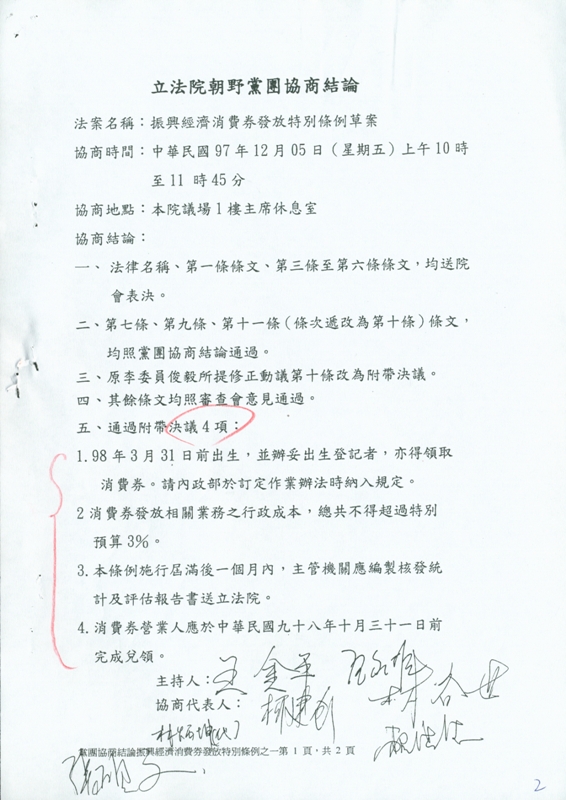 立法院朝野黨團協商結論
法案名稱：振興經濟消費券發放特別條例草案
協商時間：中華民國97年12月05日（星期五）上午10時
至11 時45分
協商地點：本院議場1樓主席休息室
協商結論：
一、 法律名稱、第一條條文、第三條至第六條條文，均送院
會表決。
二、第七條、第九條、第十一條（條次遞改為第十條）條文，
均照黨團協商結論通過。
三、原李委員俊毅所提修正動議第十條改為附帶決議。
四、其餘條文均照審查會意見通過。
五、通過附帶決議4項：
1.98年3月31日前出生，並辦妥出生登記者，亦得領取
消費券。請內政部於訂定作業辦法時納入規定。
2消費券發放相關業務之行政成本，總共不得超過特別
預算3%。
3.本條例施行屆滿後一個月內，主管機關應編製核發統
計及評估報告書送立法院。
4.消費券營業人應於中華民國九十八年十月三十一日前
完成兌領。
主持人：王金平
協商代表人：柯建銘
林炳坤
黨團協商結論振興經濟消費券發放特別條例之一第1頁，共2頁
2